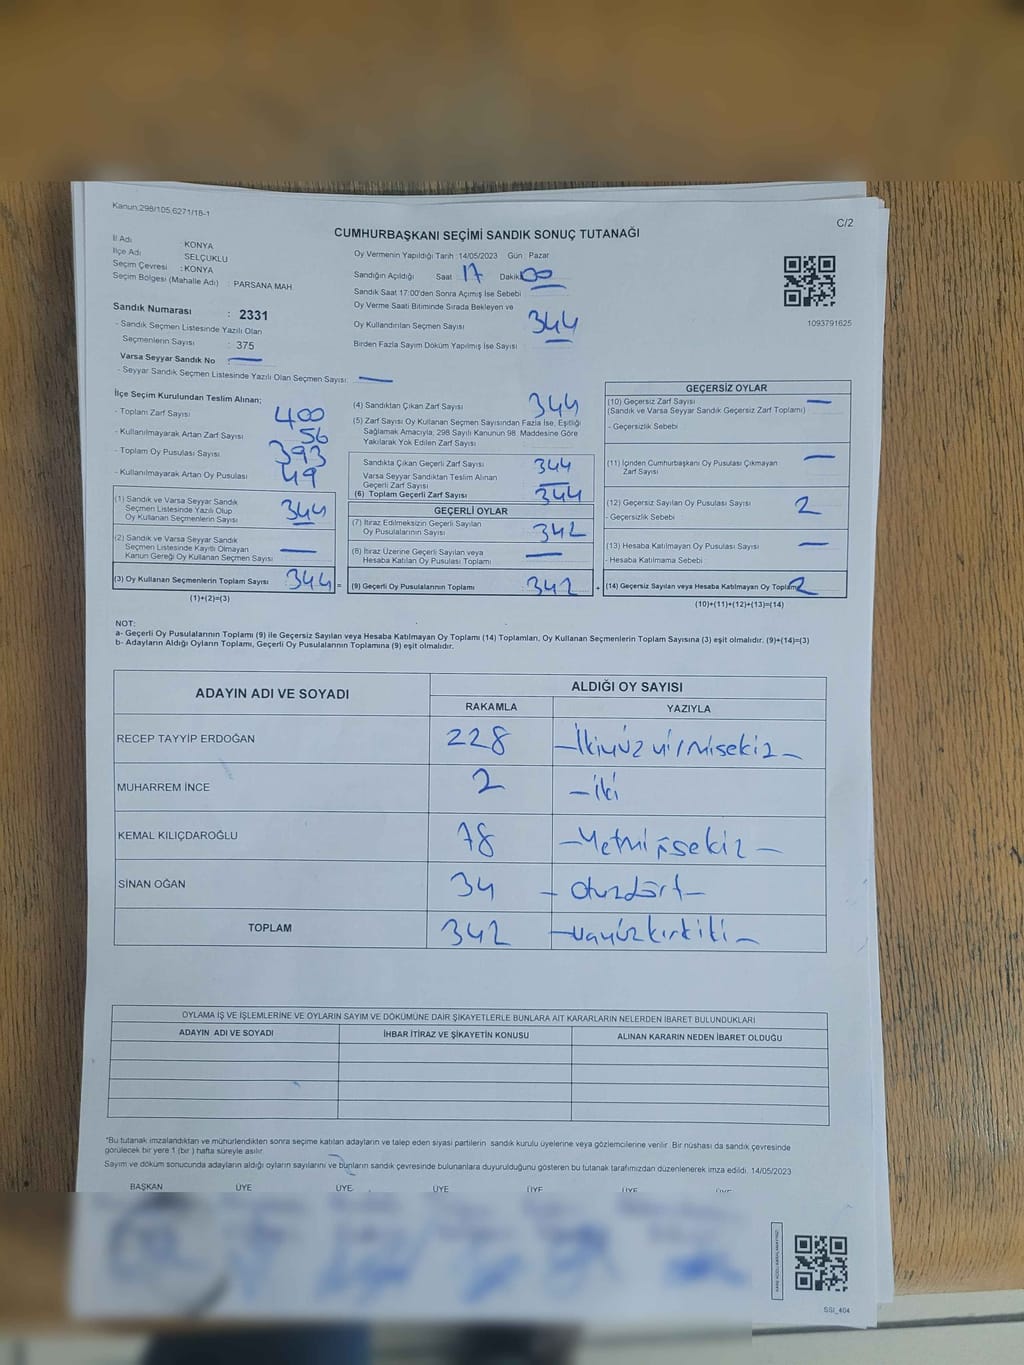 Kanun:298/105,6271/18-1
C/2
CUMHURBAŞKANI SEÇİMİ SANDIK SONUÇ TUTANAĞI
İl Adı : KONYA
İlçe Adı : SELÇUKLU
Seçim Çevresi : KONYA
Seçim Bölgesi (Mahalle Adı) : PARSANA MAH.
Sandık Numarası : 2331
- Sandık Seçmen Listesinde Yazılı Olan
Seçmenlerin Sayısı : 375
Varsa Seyyar Sandık No : —
- Seyyar Sandık Seçmen Listesinde Yazılı Olan Seçmen Sayısı: —
Oy Vermenin Yapıldığı Tarih :14/05/2023 Gün : Pazar
Sandığın Açıldığı Saat 17 Dakika 00
Sandık Saat 17:00'den Sonra Açılmış İse Sebebi
Oy Verme Saati Bitiminde Sırada Bekleyen ve
Oy Kullandırılan Seçmen Sayısı 344
Birden Fazla Sayım Döküm Yapılmış İse Sayısı
1093791625
İlçe Seçim Kurulundan Teslim Alınan;
- Toplam Zarf Sayısı 400
- Kullanılmayarak Artan Zarf Sayısı 56
- Toplam Oy Pusulası Sayısı 393
- Kullanılmayarak Artan Oy Pusulası 49
(1) Sandık ve Varsa Seyyar Sandık
Seçmen Listesinde Yazılı Olup
Oy Kullanan Seçmenlerin Sayısı 344
(2) Sandık ve Varsa Seyyar Sandık
Seçmen Listesinde Kayıtlı Olmayan
Kanun Gereği Oy Kullanan Seçmen Sayısı —
(3) Oy Kullanan Seçmenlerin Toplam Sayısı 344 =
(1)+(2)=(3)
(4) Sandıktan Çıkan Zarf Sayısı 344
(5) Zarf Sayısı Oy Kullanan Seçmen Sayısından Fazla İse, Eşitliği
Sağlamak Amacıyla; 298 Sayılı Kanunun 98. Maddesine Göre
Yakılarak Yok Edilen Zarf Sayısı
Sandıkta Çıkan Geçerli Zarf Sayısı 344
Varsa Seyyar Sandıktan Teslim Alınan
Geçerli Zarf Sayısı —
(6) Toplam Geçerli Zarf Sayısı 344
GEÇERLİ OYLAR
(7) İtiraz Edilmeksizin Geçerli Sayılan
Oy Pusulasının Sayısı 342
(8) İtiraz Üzerine Geçerli Sayılan veya
Hesaba Katılan Oy Pusulası Toplamı —
(9) Geçerli Oy Pusulalarının Toplamı 342 +
GEÇERSİZ OYLAR
(10) Geçersiz Zarf Sayısı —
(Sandık ve Varsa Seyyar Sandık Geçersiz Zarf Toplamı)
- Geçersizlik Sebebi
(11) İçinden Cumhurbaşkanı Oy Pusulası Çıkmayan
Zarf Sayısı —
(12) Geçersiz Sayılan Oy Pusulası Sayısı 2
- Geçersizlik Sebebi
(13) Hesaba Katılmayan Oy Pusulası Sayısı —
- Hesaba Katılmama Sebebi
(14) Geçersiz Sayılan veya Hesaba Katılmayan Oy Toplamı 2
(10)+(11)+(12)+(13)=(14)
NOT:
a- Geçerli Oy Pusulalarının Toplamı (9) ile Geçersiz Sayılan veya Hesaba Katılmayan Oy Toplamı (14) Toplamları, Oy Kullanan Seçmenlerin Toplam Sayısına (3) eşit olmalıdır. (9)+(14)=(3)
b- Adayların Aldığı Oyların Toplamı, Geçerli Oy Pusulalarının Toplamına (9) eşit olmalıdır.
ADAYIN ADI VE SOYADI ALDIĞI OY SAYISI
RAKAMLA YAZIYLA
RECEP TAYYİP ERDOĞAN 228 —İkiyüz yirmisekiz—
MUHARREM İNCE 2 —iki
KEMAL KILIÇDAROĞLU 78 —Yetmişsekiz—
SİNAN OĞAN 34 —otuzdört—
TOPLAM 342 —üçyüzkırkiki—
OYLAMA İŞ VE İŞLEMLERİNE VE OYLARIN SAYIM VE DÖKÜMÜNE DAİR ŞİKAYETLERLE BUNLARA AİT KARARLARIN NELERDEN İBARET BULUNDUKLARI
ADAYIN ADI VE SOYADI İHBAR İTİRAZ VE ŞİKAYETİN KONUSU ALINAN KARARIN NEDEN İBARET OLDUĞU
*Bu tutanak imzalandıktan ve mühürlendikten sonra seçime katılan adayların ve talep eden siyasi partilerin sandık kurulu üyelerine veya gözlemcilerine verilir. Bir nüshası da sandık çevresinde
görülecek bir yere 1 (bir ) hafta süreyle asılır.
Sayım ve döküm sonucunda adayların aldığı oyların sayılarını ve bunların sandık çevresinde bulunanlara duyurulduğunu gösteren bu tutanak tarafımızdan düzenlenerek imza edildi. 14/05/2023
BAŞKAN ÜYE ÜYE ÜYE ÜYE ÜYE ÜYE
SSI_404